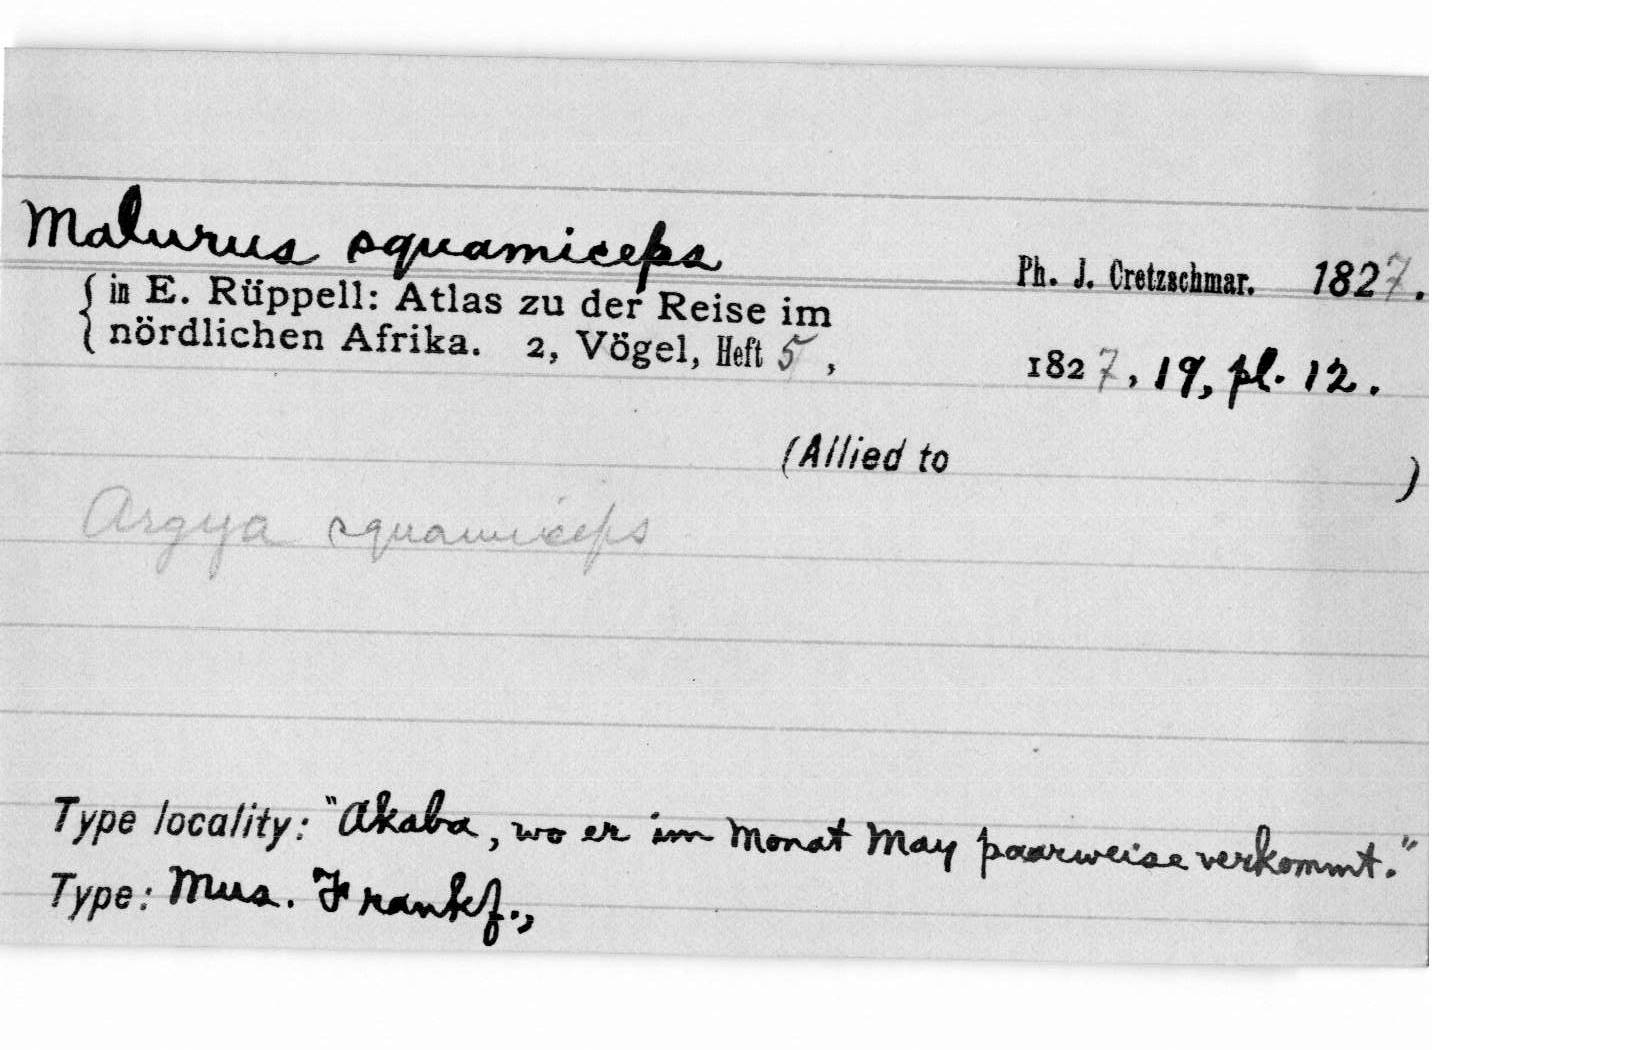 Malurus squamiceps
Ph. J. Cretzschmar. 1827.
{ in E. Rüppell: Atlas zu der Reise im
nördlichen Afrika. 2, Vögel, Heft 5, 1827, 19, pl. 12.
(Allied to )
Argya squamiceps
Type locality: "Akaba, wo er im Monat May paarweise verkommt."
Type: Mus. Frankf.,